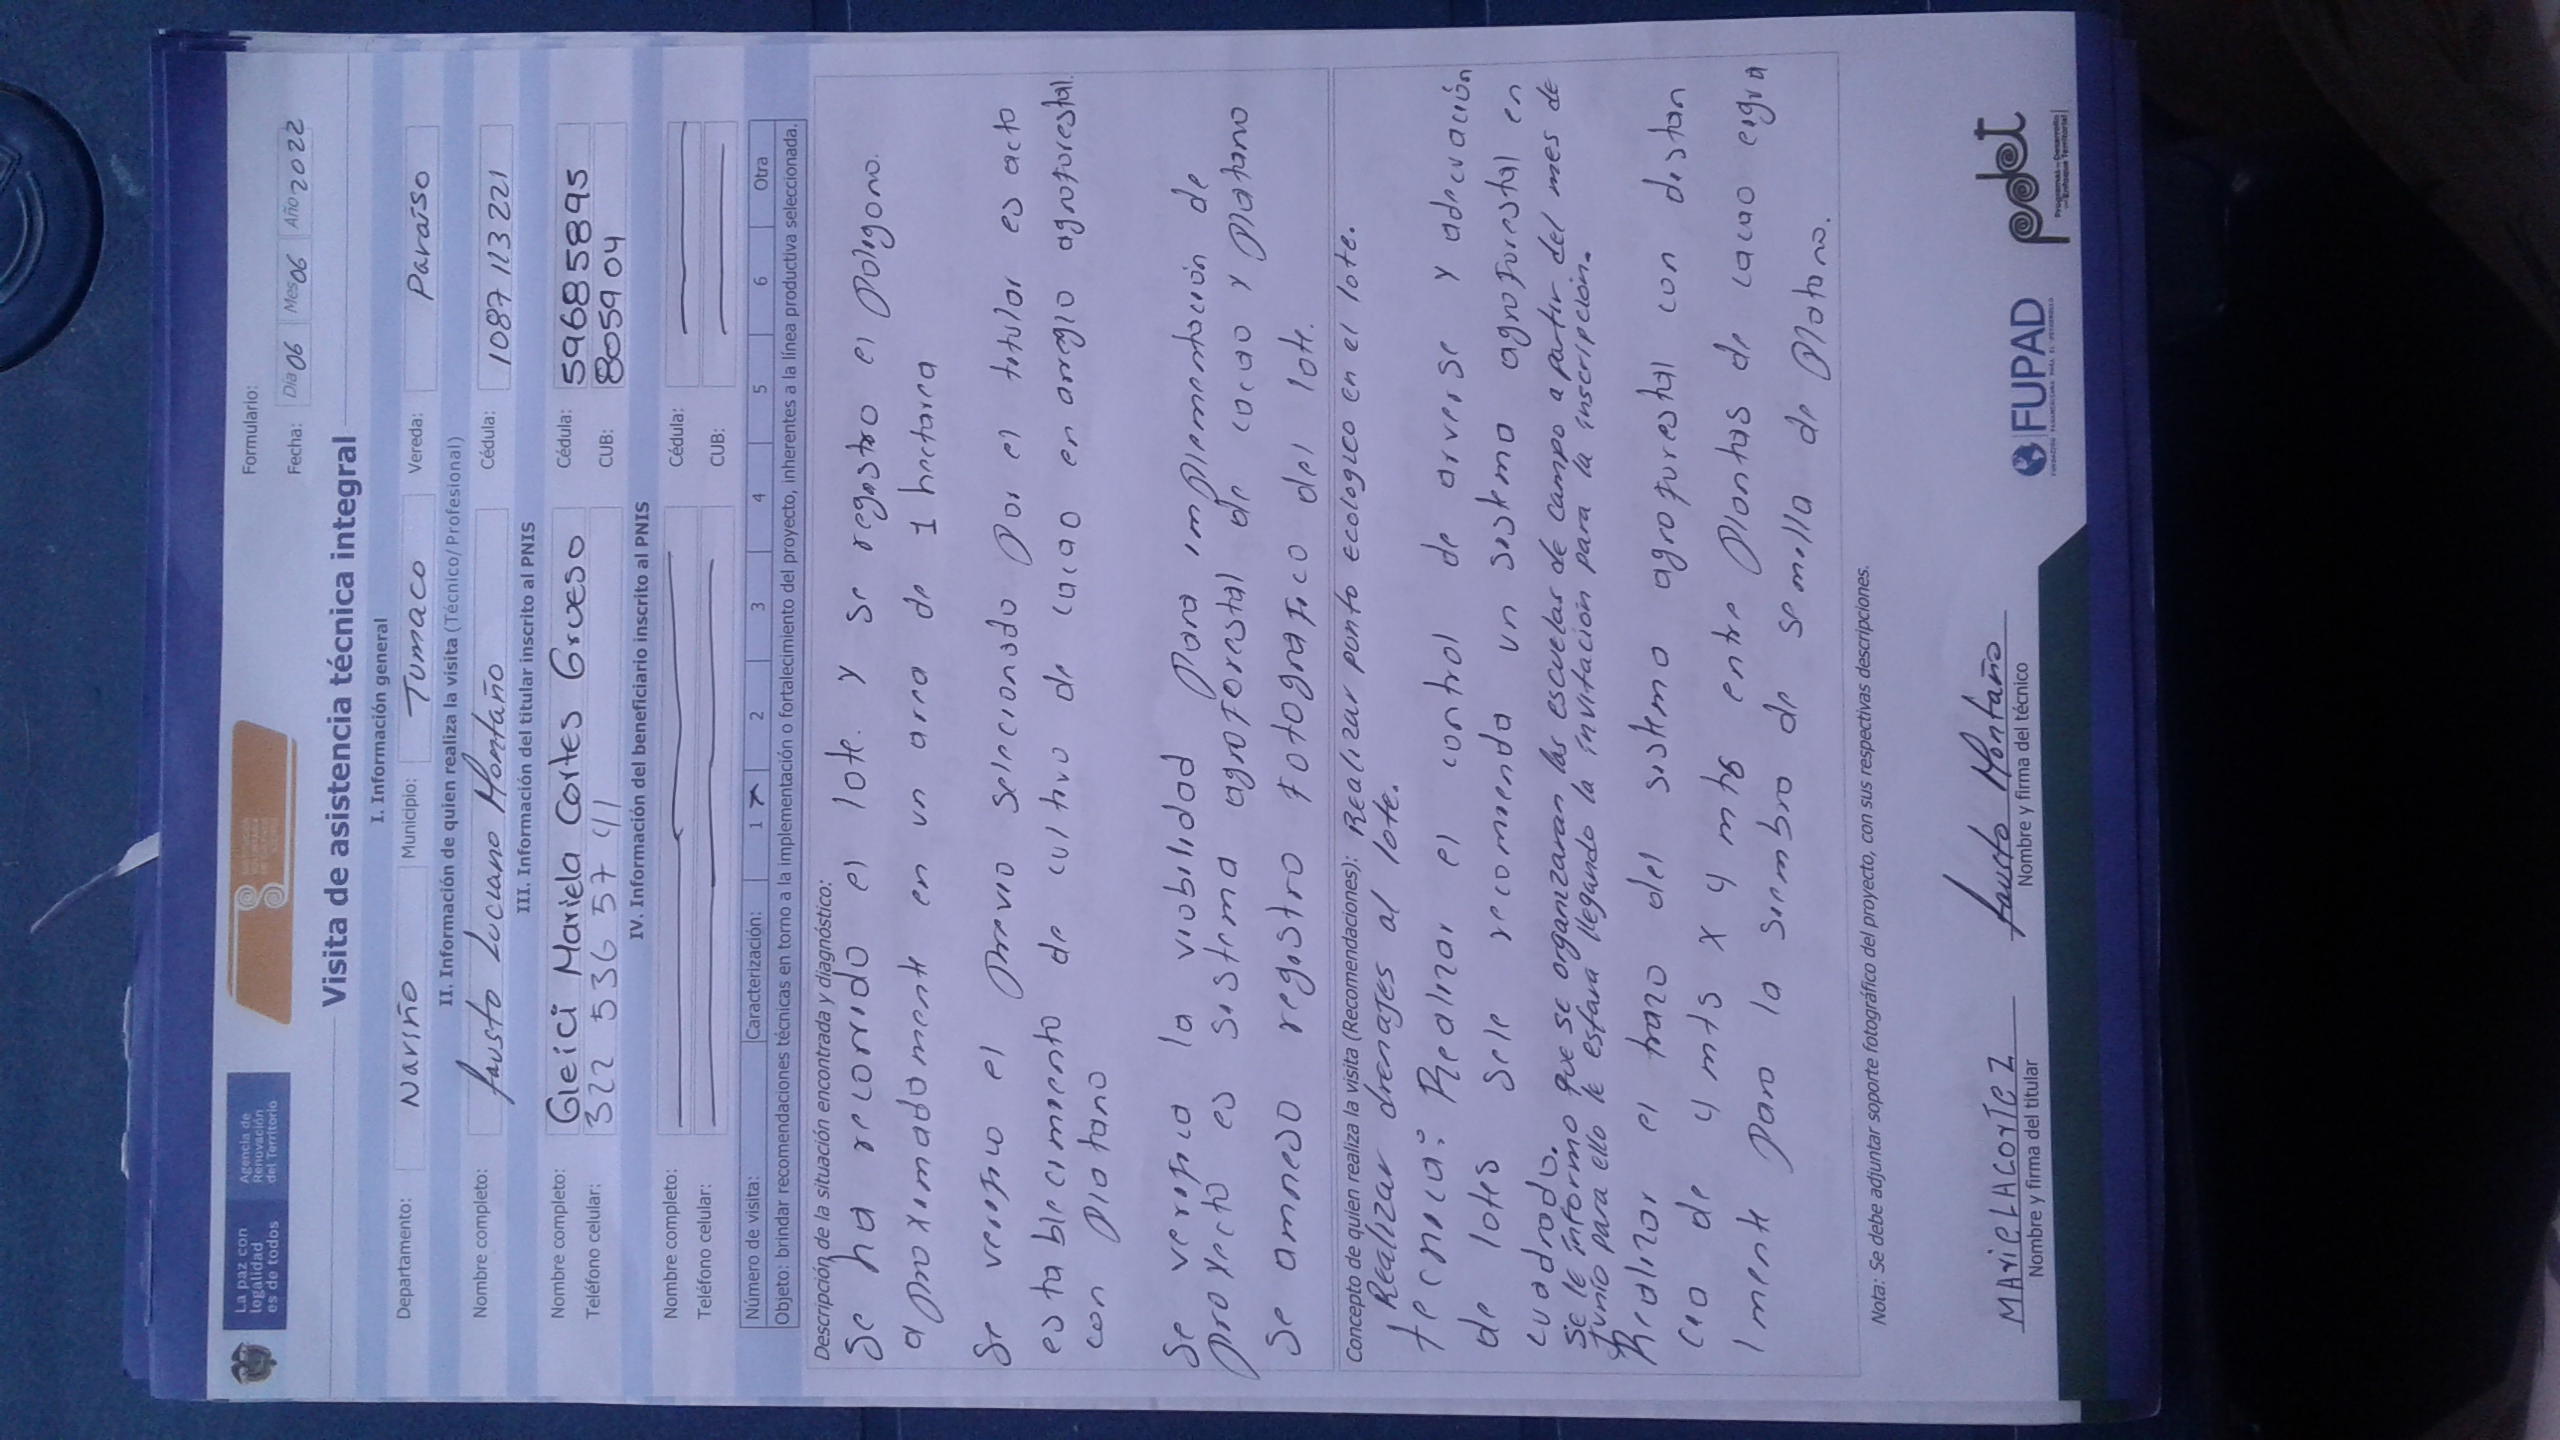 La paz con
legalidad
es de todos
Agencia de
Renovación
del Territorio
Formulario:
Fecha: Día 06 Mes 06 Año 2022
Visita de asistencia técnica integral
I. Información general
Departamento: Nariño Municipio: Tumaco Vereda: Paraíso
II. Información de quien realiza la visita (Técnico/Profesional)
Nombre completo: fausto Luciano Montaño Cédula: 1087 113 221
III. Información del titular inscrito al PNIS
Nombre completo: Gleici Mariela Cortes Grueso Cédula: 59685895
Teléfono celular: 322 536 57 41 CUB: 8059 04
IV. Información del beneficiario inscrito al PNIS
Nombre completo: Cédula:
Teléfono celular: CUB:
Número de visita: Caracterización: 1 X 2 3 4 5 6 Otra
Objeto: brindar recomendaciones técnicas en torno a la implementación o fortalecimiento del proyecto, inherentes a la línea productiva seleccionada.
Descripción de la situación encontrada y diagnóstico:
Se ha recorrido el lote. y se registro el poligono.
aproximadamente en un area de 1 hectarea
Se verifico el previo seleccionado por el titular es acto
establecimiento de cultivo de cacao en arreglo agroforestal.
con platano
Se verifica la viabilidad para implementación de
proyecto es sistema agroforestal de cacao y platano
Se amneso registro fotografico del lote.
Concepto de quien realiza la visita (Recomendaciones): Realizar punto ecologico en el lote.
Realizar drenajes al lote.
tecnica: Realizar el control de arverse y adecuación
de lotes sele recomienda un sistema agroforestal en
cuadrado.
Se le informo que se organizaran las escuelas de campo a partir del mes de
Junio para ello le estara llegando la invitación para la inscripción.
Realizar el trazo del sistema agroforestal con distan
cia de 4 mts x 4 mts entre plantas de cacao eigua
lmente para la siembra de semilla de platano.
Nota: Se debe adjuntar soporte fotográfico del proyecto, con sus respectivas descripciones.
MArieLACorTeZ
Nombre y firma del titular
fausto Montaño
Nombre y firma del técnico
FUPAD
FUNDACIÓN PANAMERICANA PARA EL DESARROLLO
pdet
Programas de Desarrollo
con Enfoque Territorial